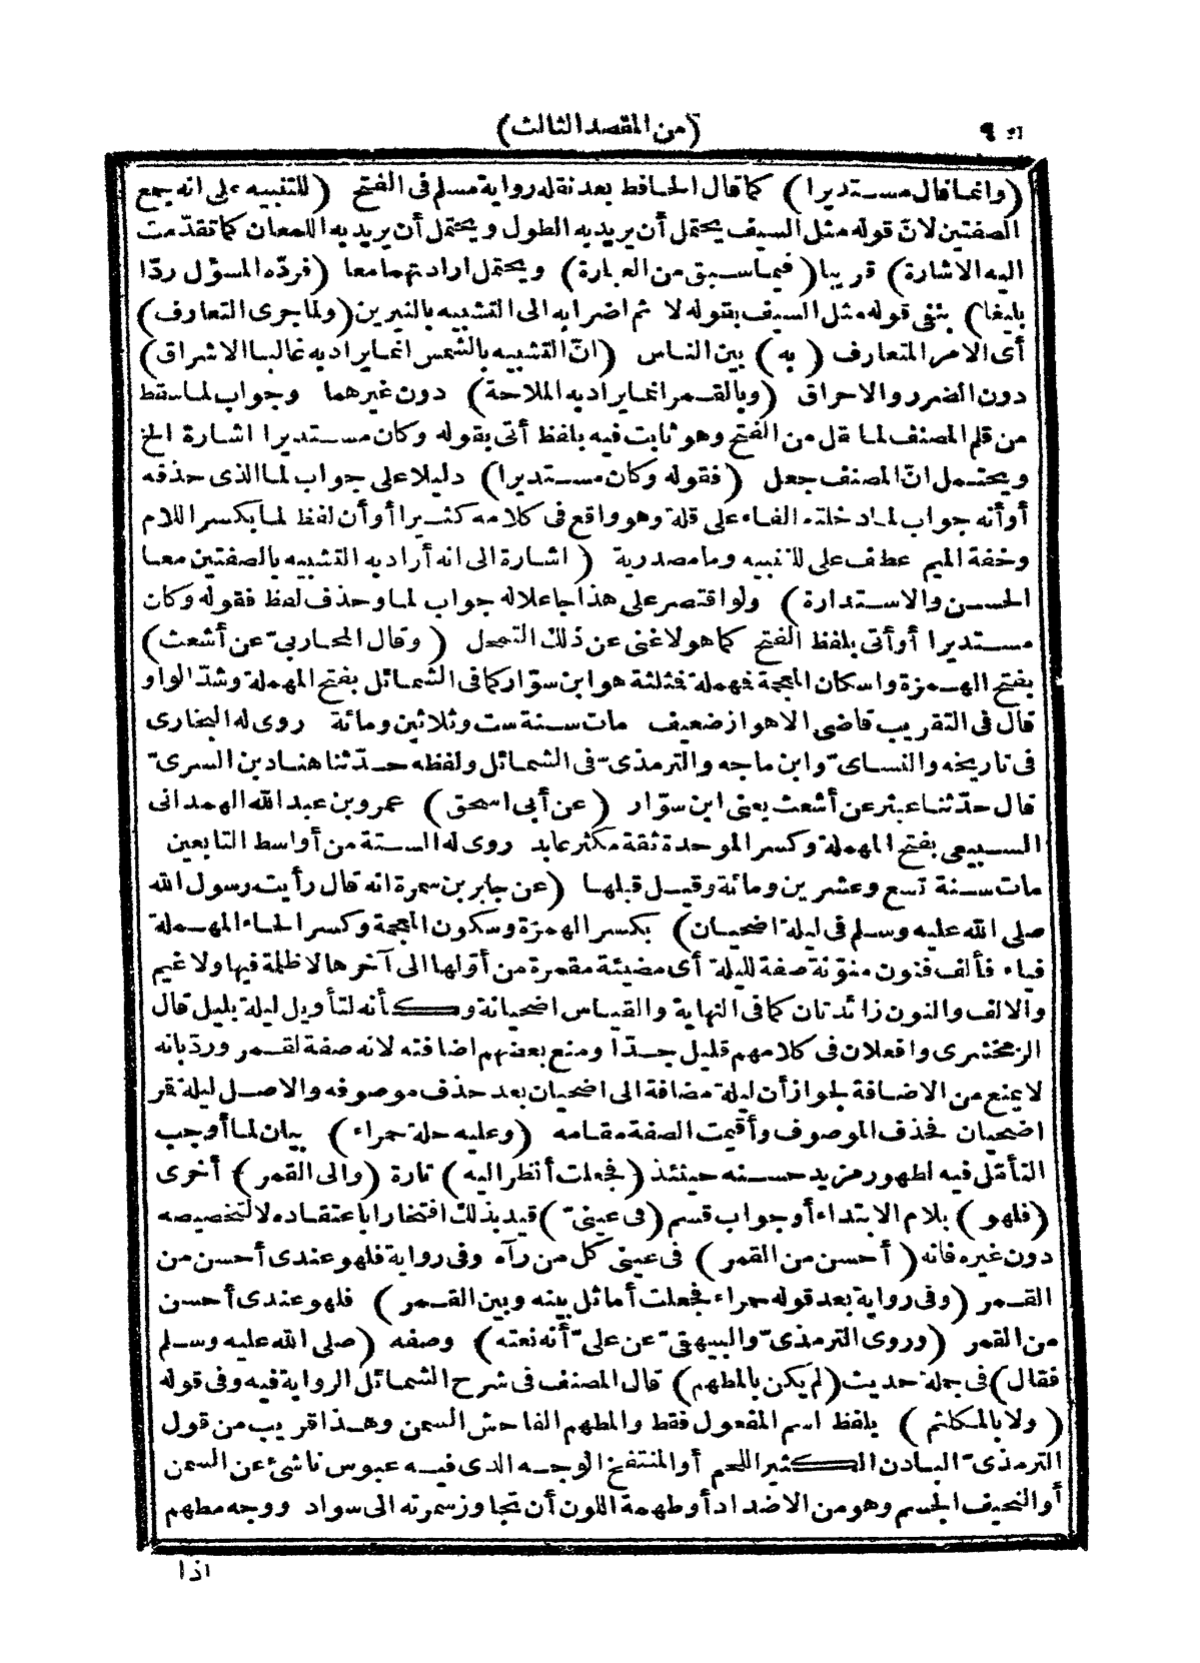 (من المقصد الثالث)
(وانما قال مستديرا) كما قال الحافظ بعد نقله رواية مسلم فى الفتح (للتنبيه على انه جمع
الصفتين لان قوله مثل السيف يحتمل أن يريد به الطول ويحتمل أن يريد به اللمعان كما تقدّمت
اليه الاشارة) قريبا (فيما سبق من العبارة) ويحتمل ارادتهما معا (فردّه المسؤل ردّا
بليغا) بنفى قوله مثل السيف بقوله لا ثم اضرابه الى التشبيه بالنيرين (ولما جرى التعارف)
أى الامر المتعارف (به) بين الناس (انّ التشبيه بالشمس انما يراد به غالبا الاشراق)
دون الضرر والاحراق (وبالقمر انما يراد به الملاحة) دون غيرهما وجواب لما سقط
من قلم المصنف لما نقل من الفتح وهو ثابت فيه بلفظ أتى بقوله وكان مستديرا اشارة الخ
ويحتمل انّ المصنف جعل (فقوله وكان مستديرا) دليلا على جواب لما الذى حذفه
أو أنه جواب لما دخلته الفاء على قلة وهو واقع فى كلامه كثيرا أو أن لفظ لما بكسر اللام
وخفة الميم عطف على للتنبيه وما مصدرية (اشارة الى انه أراد به التشبيه بالصفتين معا
الحسن والاستدارة) ولو اقتصر على هذا جاعلا له جواب لما وحذف لفظ فقوله وكان
مستديرا أو أتى بلفظ الفتح كما هو لاغنى عن ذلك التمحل (وقال المحاربىّ عن أشعث)
بفتح الهمزة واسكان المعجمة فهملة فثلثة هو ابن سوّار كما فى الشمائل بفتح المهملة وشدّ الواو
قال فى التقريب قاضى الاهواز ضعيف مات سنة ست وثلاثين ومائة روى له البخارى
فى تاريخه والنساىّ وابن ماجه والترمذىّ فى الشمائل ولفظه حدّثنا هناد بن السرىّ
قال حدّثنا عبثر عن أشعث يعنى ابن سوّار (عن أبى اسحق) عمرو بن عبد الله الهمدانى
السبيعى بفتح المهملة وكسر الموحدة ثقة مكثر عابد روى له الستة من أواسط التابعين
مات سنة تسع وعشرين ومائة وقيل قبلها (عن جابر بن سمرة انه قال رأيت رسول الله
صلى الله عليه وسلم فى ليلة اضحيان) بكسر الهمزة وسكون المعجمة وكسر الحاء المهملة
فياء فألف فنون منوّنة صفة لليلة أى مضيئة مقمرة من أوّلها الى آخرها لا ظلمة فيها ولا غيم
والالف والنون زائدتان كما فى النهاية والقياس اضحيانة وكأنه لتأويل ليلة بليل قال
الزمخشرى وافعلان فى كلامهم قليل جدّا ومنع بعضهم اضافته لانه صفة لقمر وردّ بانه
لا يمنع من الاضافة لجواز أن ليلة مضافة الى اضحيان بعد حذف موصوفه والاصل ليلة قمر
اضحيان فحذف الموصوف وأقيمت الصفة مقامه (وعليه حلة حمراء) بيان لما أوجب
التأمّل فيه لظهور مزيد حسنه حينئذ (فجعلت أنظر اليه) تارة (والى القمر) أخرى
(فلهو) بلام الابتداء أو جواب قسم (فى عينىّ) قيد بذلك افتخارا باعتقاده لا لتخصيصه
دون غيره فانه (أحسن من القمر) فى عينى كل من رآه وفى رواية فلهو عندى أحسن من
القمر (وفى رواية بعد قوله حمراء فجعلت أماثل بينه وبين القمر) فلهو عندى أحسن
من القمر (وروى الترمذىّ والبيهقىّ عن علىّ أنه نعته) وصفه (صلى الله عليه وسلم
فقال) فى جملة حديث (لم يكن بالمطهم) قال المصنف فى شرح الشمائل الرواية فيه وفى قوله
(ولا بالمكلثم) بلفظ اسم المفعول فقط والمطهم الفاحش السمن وهذا قريب من قول
الترمذىّ البادن الكثير اللحم أو المنتفخ الوجه الذى فيه عبوس ناشئ عن السمن
أو النحيف الجسم وهو من الاضداد أو طهمة اللون أن تجاوز سمرته الى سواد ووجه مطهم
اذا